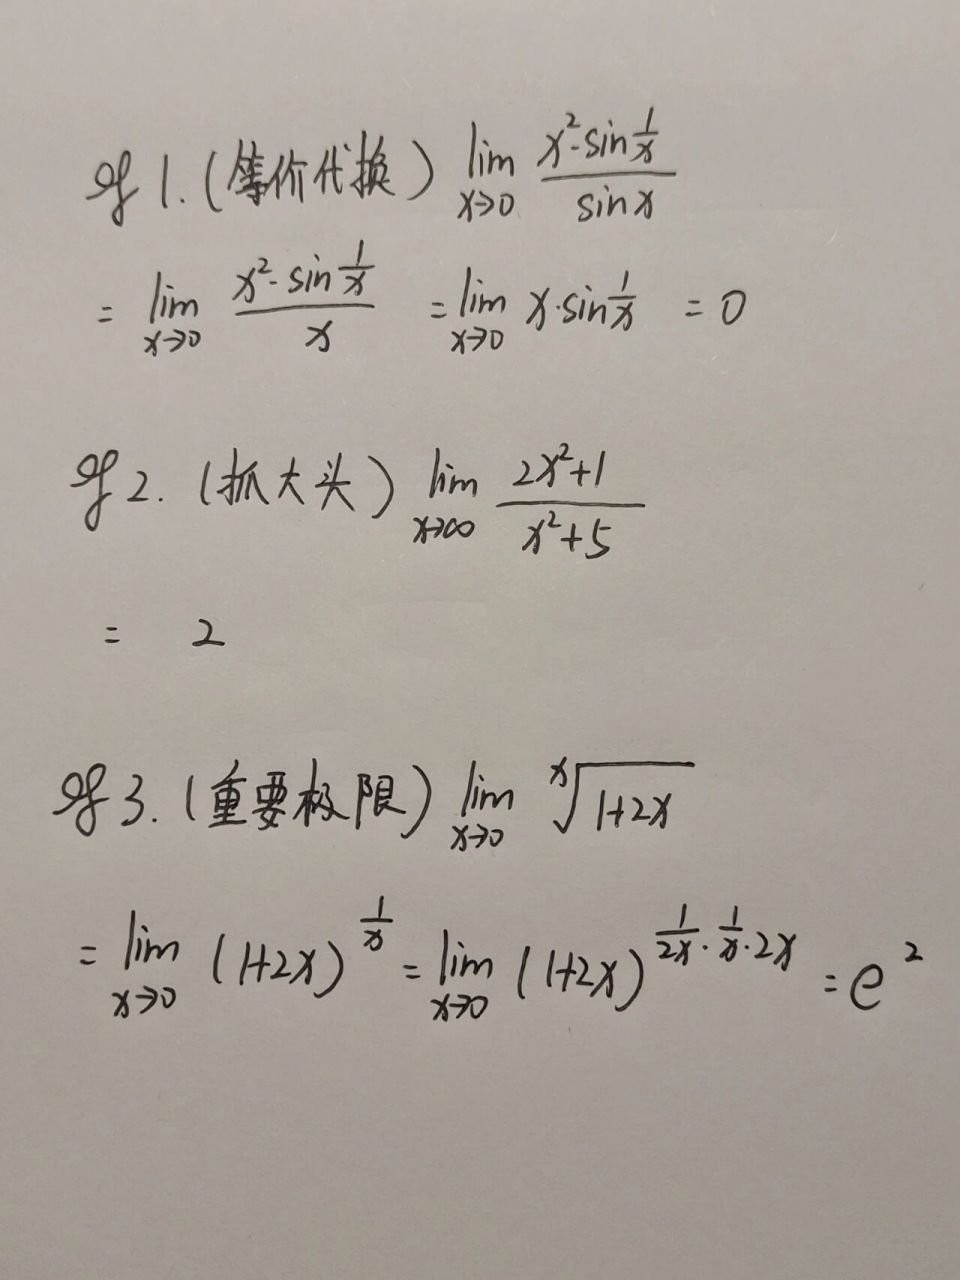 例1.(等价代换) lim x→0 (x²·sin 1/x)/(sin x)
= lim x→0 (x²·sin 1/x)/x = lim x→0 x·sin 1/x = 0
例2.(抓大头) lim x→∞ (2x²+1)/(x²+5)
= 2
例3.(重要极限) lim x→0 ˣ√(1+2x)
= lim x→0 (1+2x)^(1/x) = lim x→0 (1+2x)^(1/2x · 1/x · 2x) = e²